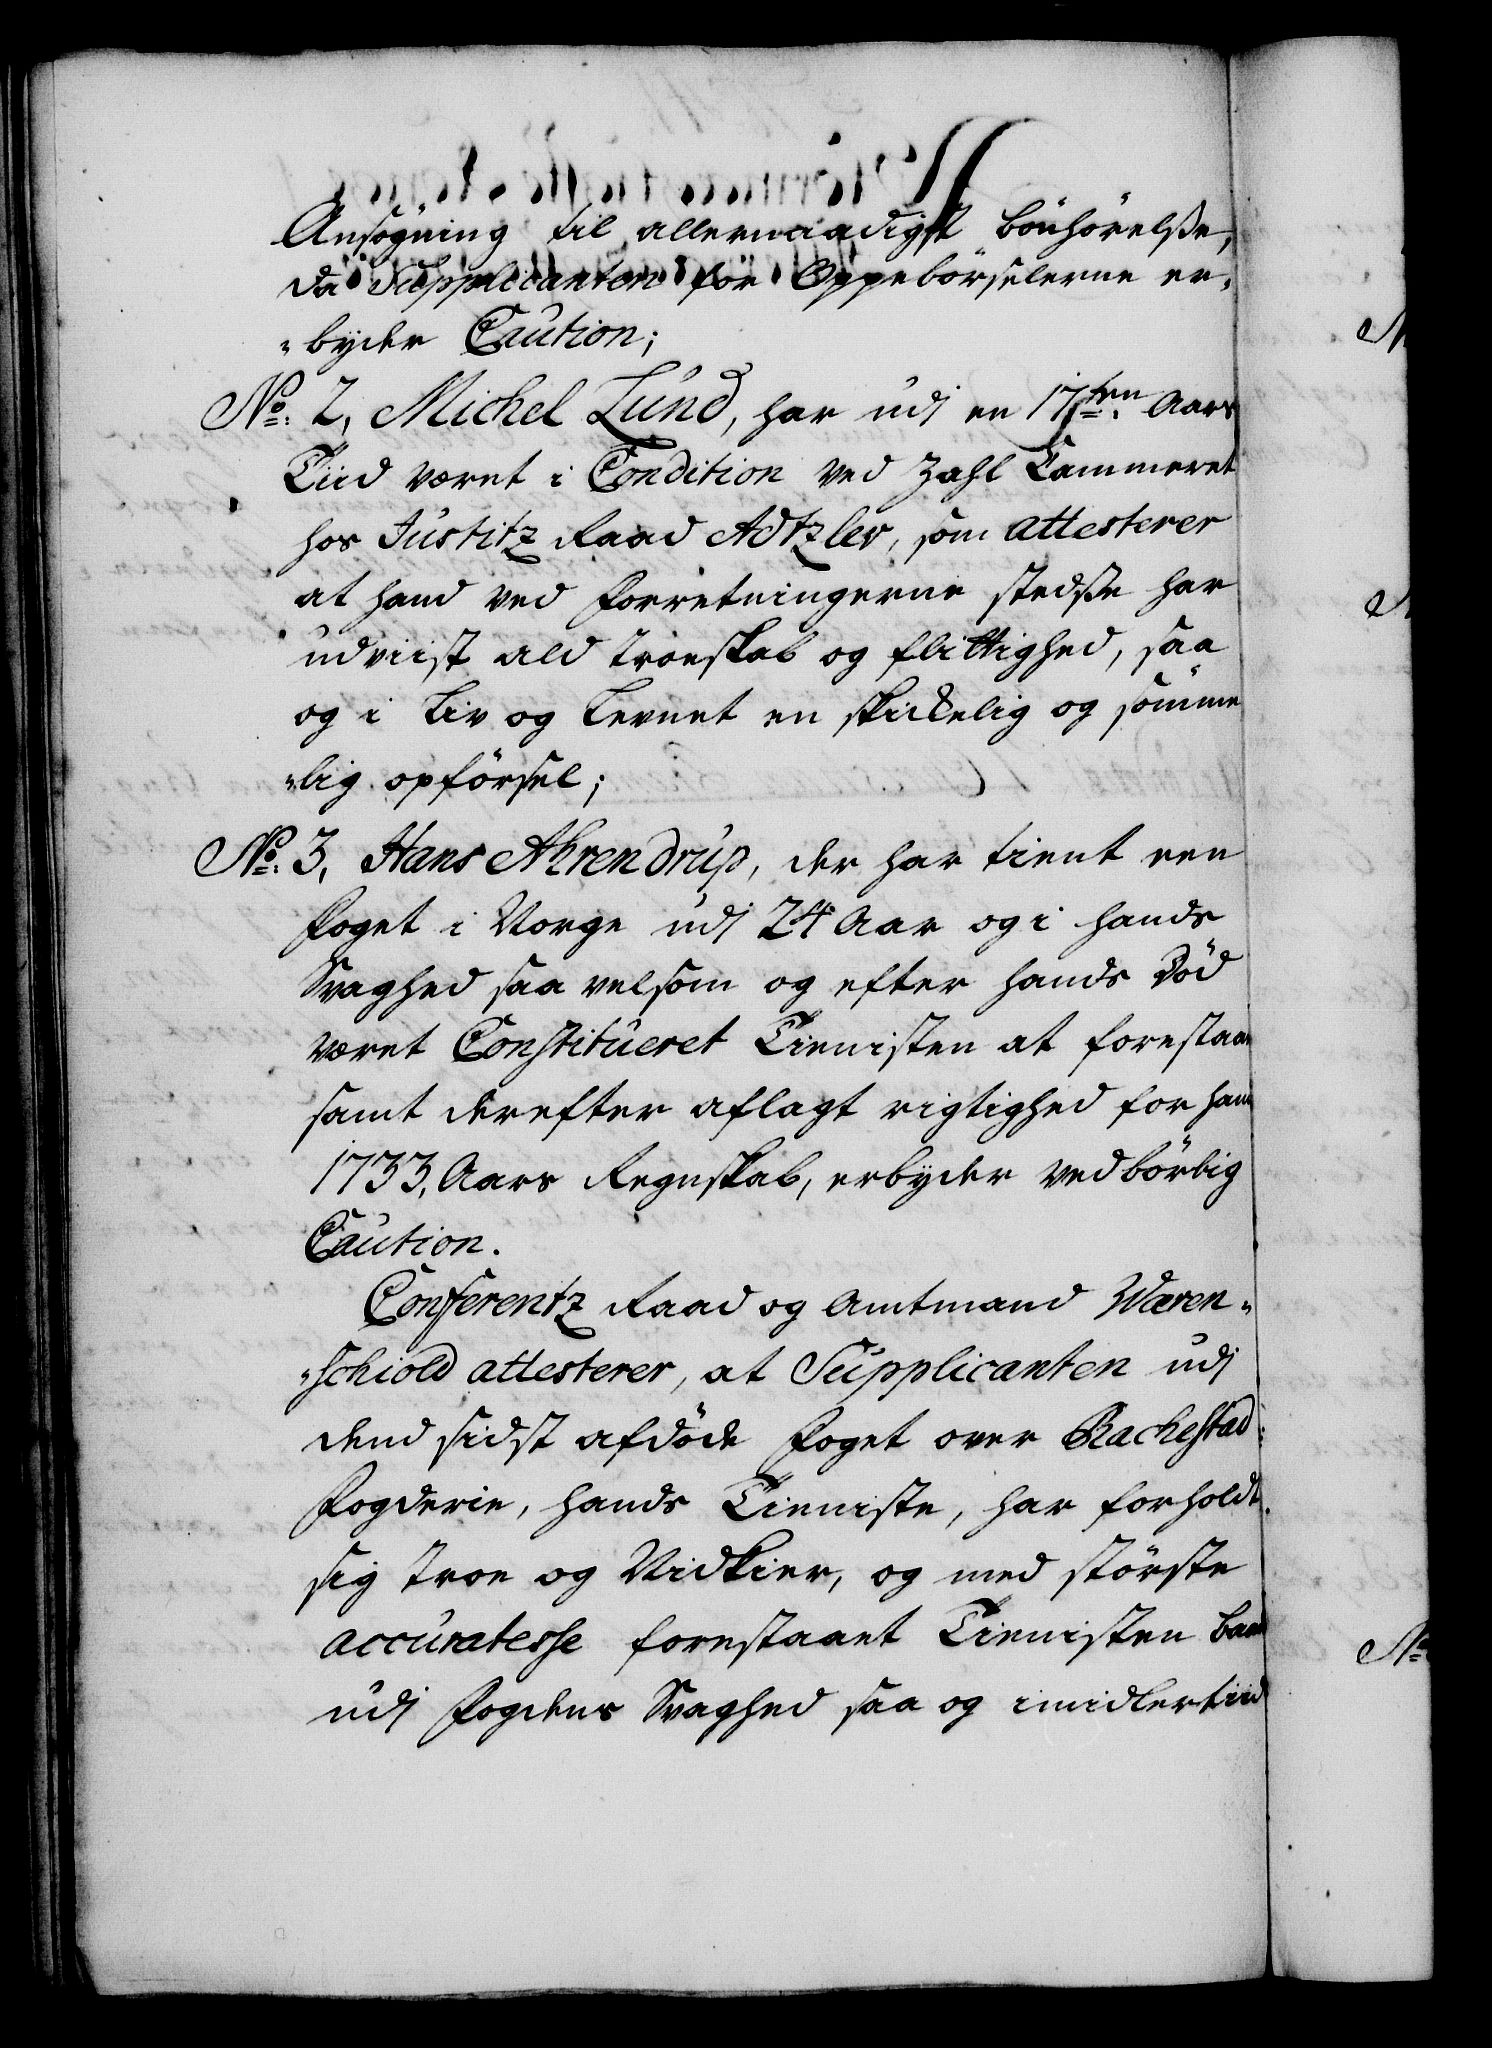 Ansøgning til allernaadigst bönhörelsse,
da Supplicanten for Oppebörselerne er„
„byder Caution;
No: 2, Michel Lund, har udj en 17ten Aars
Tiid været i Condition ved Zahl Cammeret
hos Justitz Raad Adtzler, som attesterer
at hand ved Forretningerne stedsse har
udviist ald troeskab og flittighed, saa
og i Liv og Levnet en skickelig og sömme
„lig opförsel;
No: 3, Hans Ahrendrup, der har tient een
Foget i Norge udj 24 Aar og i hands
Svaghed saa velsom og efter hands Död
været Constitueret Tienisten at forestaae
samt derefter aflagt rigtighed for hans
1733, Aars Regnskab, erbyder vedbörlig
Caution.
Conferentz Raad og Amtmand Waren„
„schiold attesterer, at Supplicanten udj
dend sidst afdöde Foget over Rachestad
Fogderie, hands Tieniste, har forholdt
sig troe og Vidkier, og med störste
accuratesse forestaaet Tienisten baade
udj Fogdens Svaghed saa og imidlertiid